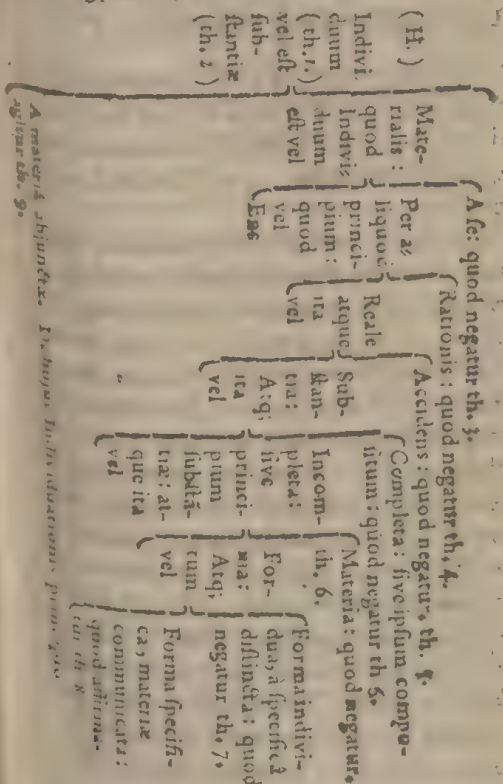 (H.)
Indivi
duum
(th. 1.)
vel eſt
ſub-
ſtantiæ
(th. 2)
Mate-
rialis:
quod
Indivi
duum
eſt vel
A ſe: quod negatur th. 3.
Per a-
liquod
princi-
pium:
quod
vel
Ens
Rationis: quod negatur th. 4.
Reale
atque
ita
vel
Accidens: quod negatur, th. 5.
Sub-
ſtan-
tia:
Atq;
ita
vel
Completa: ſive ipſum compo-
ſitum: quod negatur th 5.
Incom-
pleta:
ſive
princi-
pium
ſubſtã-
tiæ: at-
que ita
vel
Materia: quod negatur.
th. 6.
For-
ma:
Atq;
tum
vel
Forma indivi-
dua, à ſpecificâ
diſtincta: quod
negatur th. 7.
Forma ſpecifi-
ca, materiæ
communicata:
quod affirma-
tur th 8
A materiâ abjunctæ.
th. 9.